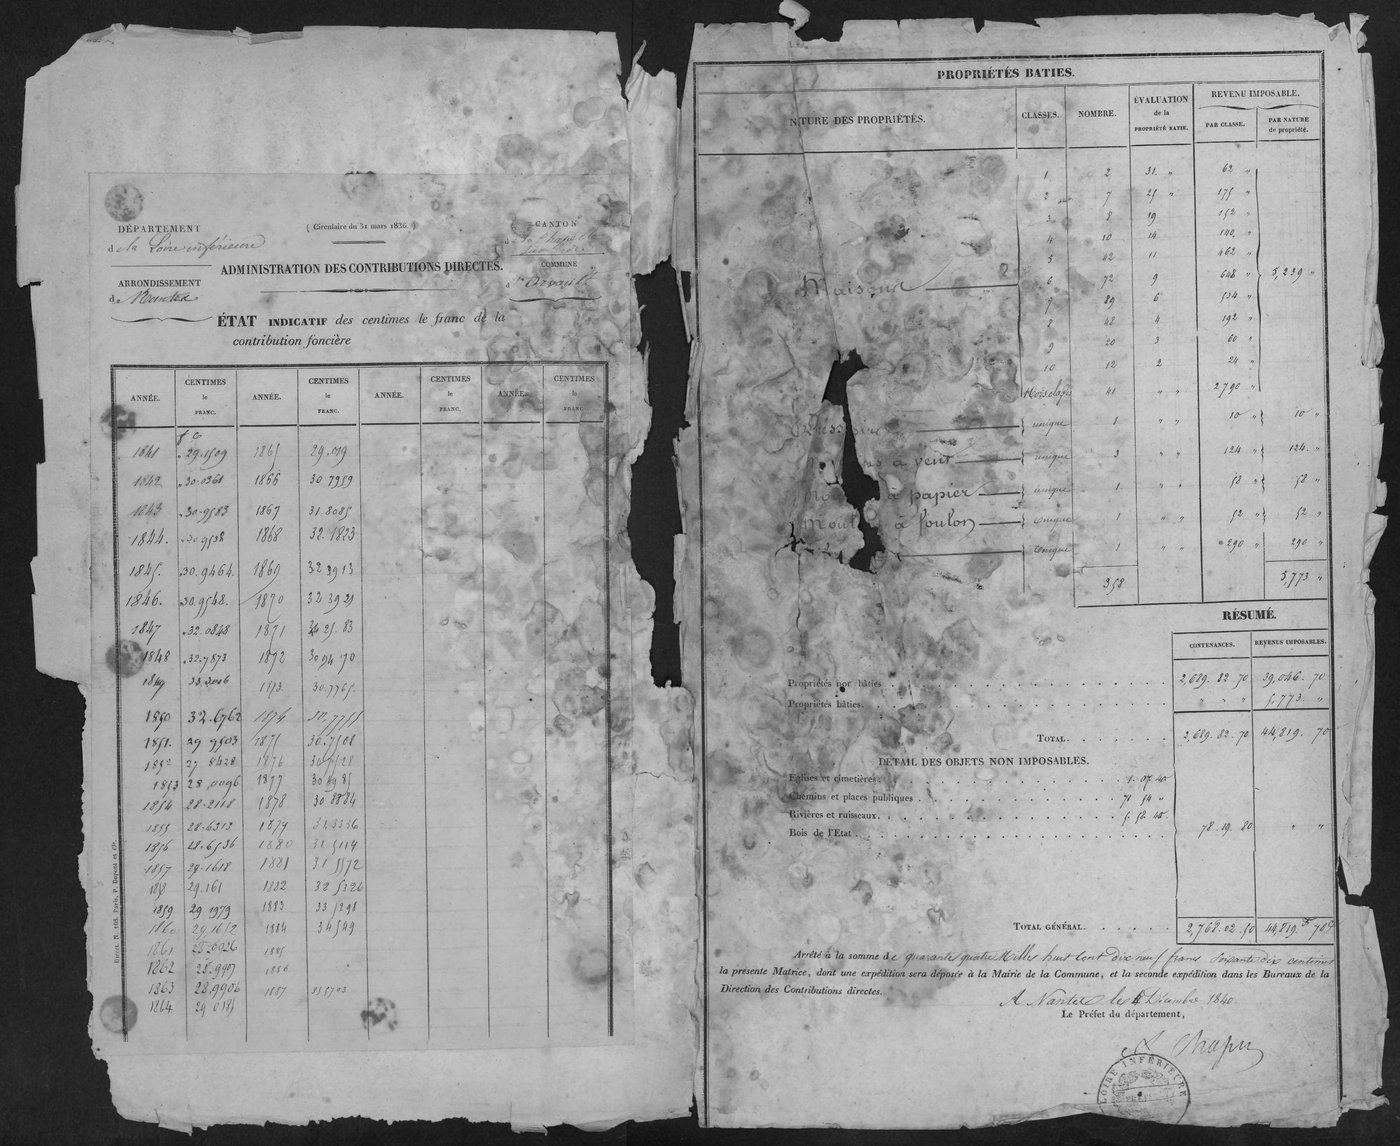 DÉPARTEMENT
de la Loire inférieure
( Circulaire du 31 mars 1836. )
CANTON
ARRONDISSEMENT
de Nantes
COMMUNE
d'Orvault
ADMINISTRATION DES CONTRIBUTIONS DIRECTES.
ÉTAT INDICATIF des centimes le franc de la
contribution foncière
ANNÉE. CENTIMES le FRANC. ANNÉE. CENTIMES le FRANC. ANNÉE. CENTIMES le FRANC. ANNÉE. CENTIMES le FRANC.
f c
1841 29.1509 1865 29.019
1842 30.0361 1866 30 7959
1843 30.9583 1867 31.8085
1844. 30.9538 1868 32.1823
1845. 30.9464. 1869 32 3913
1846. 30.9548. 1870 32.3921
1847 32.0848 1871 25.83
1848 32.7873 1872 30 94 70
1849 1873. 30.7765
1850 32.6762 1874
1851. 29 9503 1875 30.7508
1852 27.8428 1876
1853 28.0096 1877
1854 28.2118 1878 30 8884
1855 28.6313 1879 31.3336
1856 28.6536 1880 31 5114
1857 29.1618 1881 31 5572
29.161 1882 32 5326
1859 29 1979 1883 33 5298
1860 29.1652 1884 34 549
1861 1885
1862 28.9907 1886
1863 28.9906 1887
1864 29 0185
PROPRIÉTÉS BATIES.
NTURE DES PROPRIÉTÉS. CLASSES. NOMBRE. ÉVALUATION de la PROPRIÉTÉ BATIE. REVENU IMPOSABLE.
PAR CLASSE. PAR NATURE de propriété.
1 2 31. " 62 "
2 7 25 " 175 "
3 8 19 152 "
4 10 14 140. "
5 42 11 462 "
Maisons 6 72 9 648 " 5,239 "
7 89 6 534 "
8 48 4 192 "
9 20 3 60 "
10 12 2 24 "
Hors classe 41 " " 2790 "
unique 1 " " 10 " 10 "
à vent unique 3 " " 124 " 124. "
à papier unique 1 " " 58 " 58 "
à foulon unique 1 " " 52 " 52 "
unique 1 " " 290 " 290 "
358 5,773 "
RÉSUMÉ.
CONTENANCES. REVENUS IMPOSABLES.
Propriétés non bâties 2,689. 82. 70 39,046. 70
Propriétés bâties. " " " 5.773 "
TOTAL. 2,689. 82. 70 44,819. 70
DÉTAIL DES OBJETS NON IMPOSABLES.
Eglises et cimetières. 1. 07. 40
Chemins et places publiques 71 54 "
Rivières et ruisseaux. 5. 58. 40
Bois de l'Etat 78. 19. 80 " "
TOTAL GÉNÉRAL. 2,768. 02. 50 44,819. f 70 c
Arrêté à la somme de quarante quatre Mille huit Cent dix neuf francs soixante dix centimes
la présente Matrice, dont une expédition sera déposée à la Mairie de la Commune, et la seconde expédition dans les Bureaux de la
Direction des Contributions directes.
A Nantes le 4 Décembre 1840.
Le Préfet du département,
LOIRE INFÉRIEURE